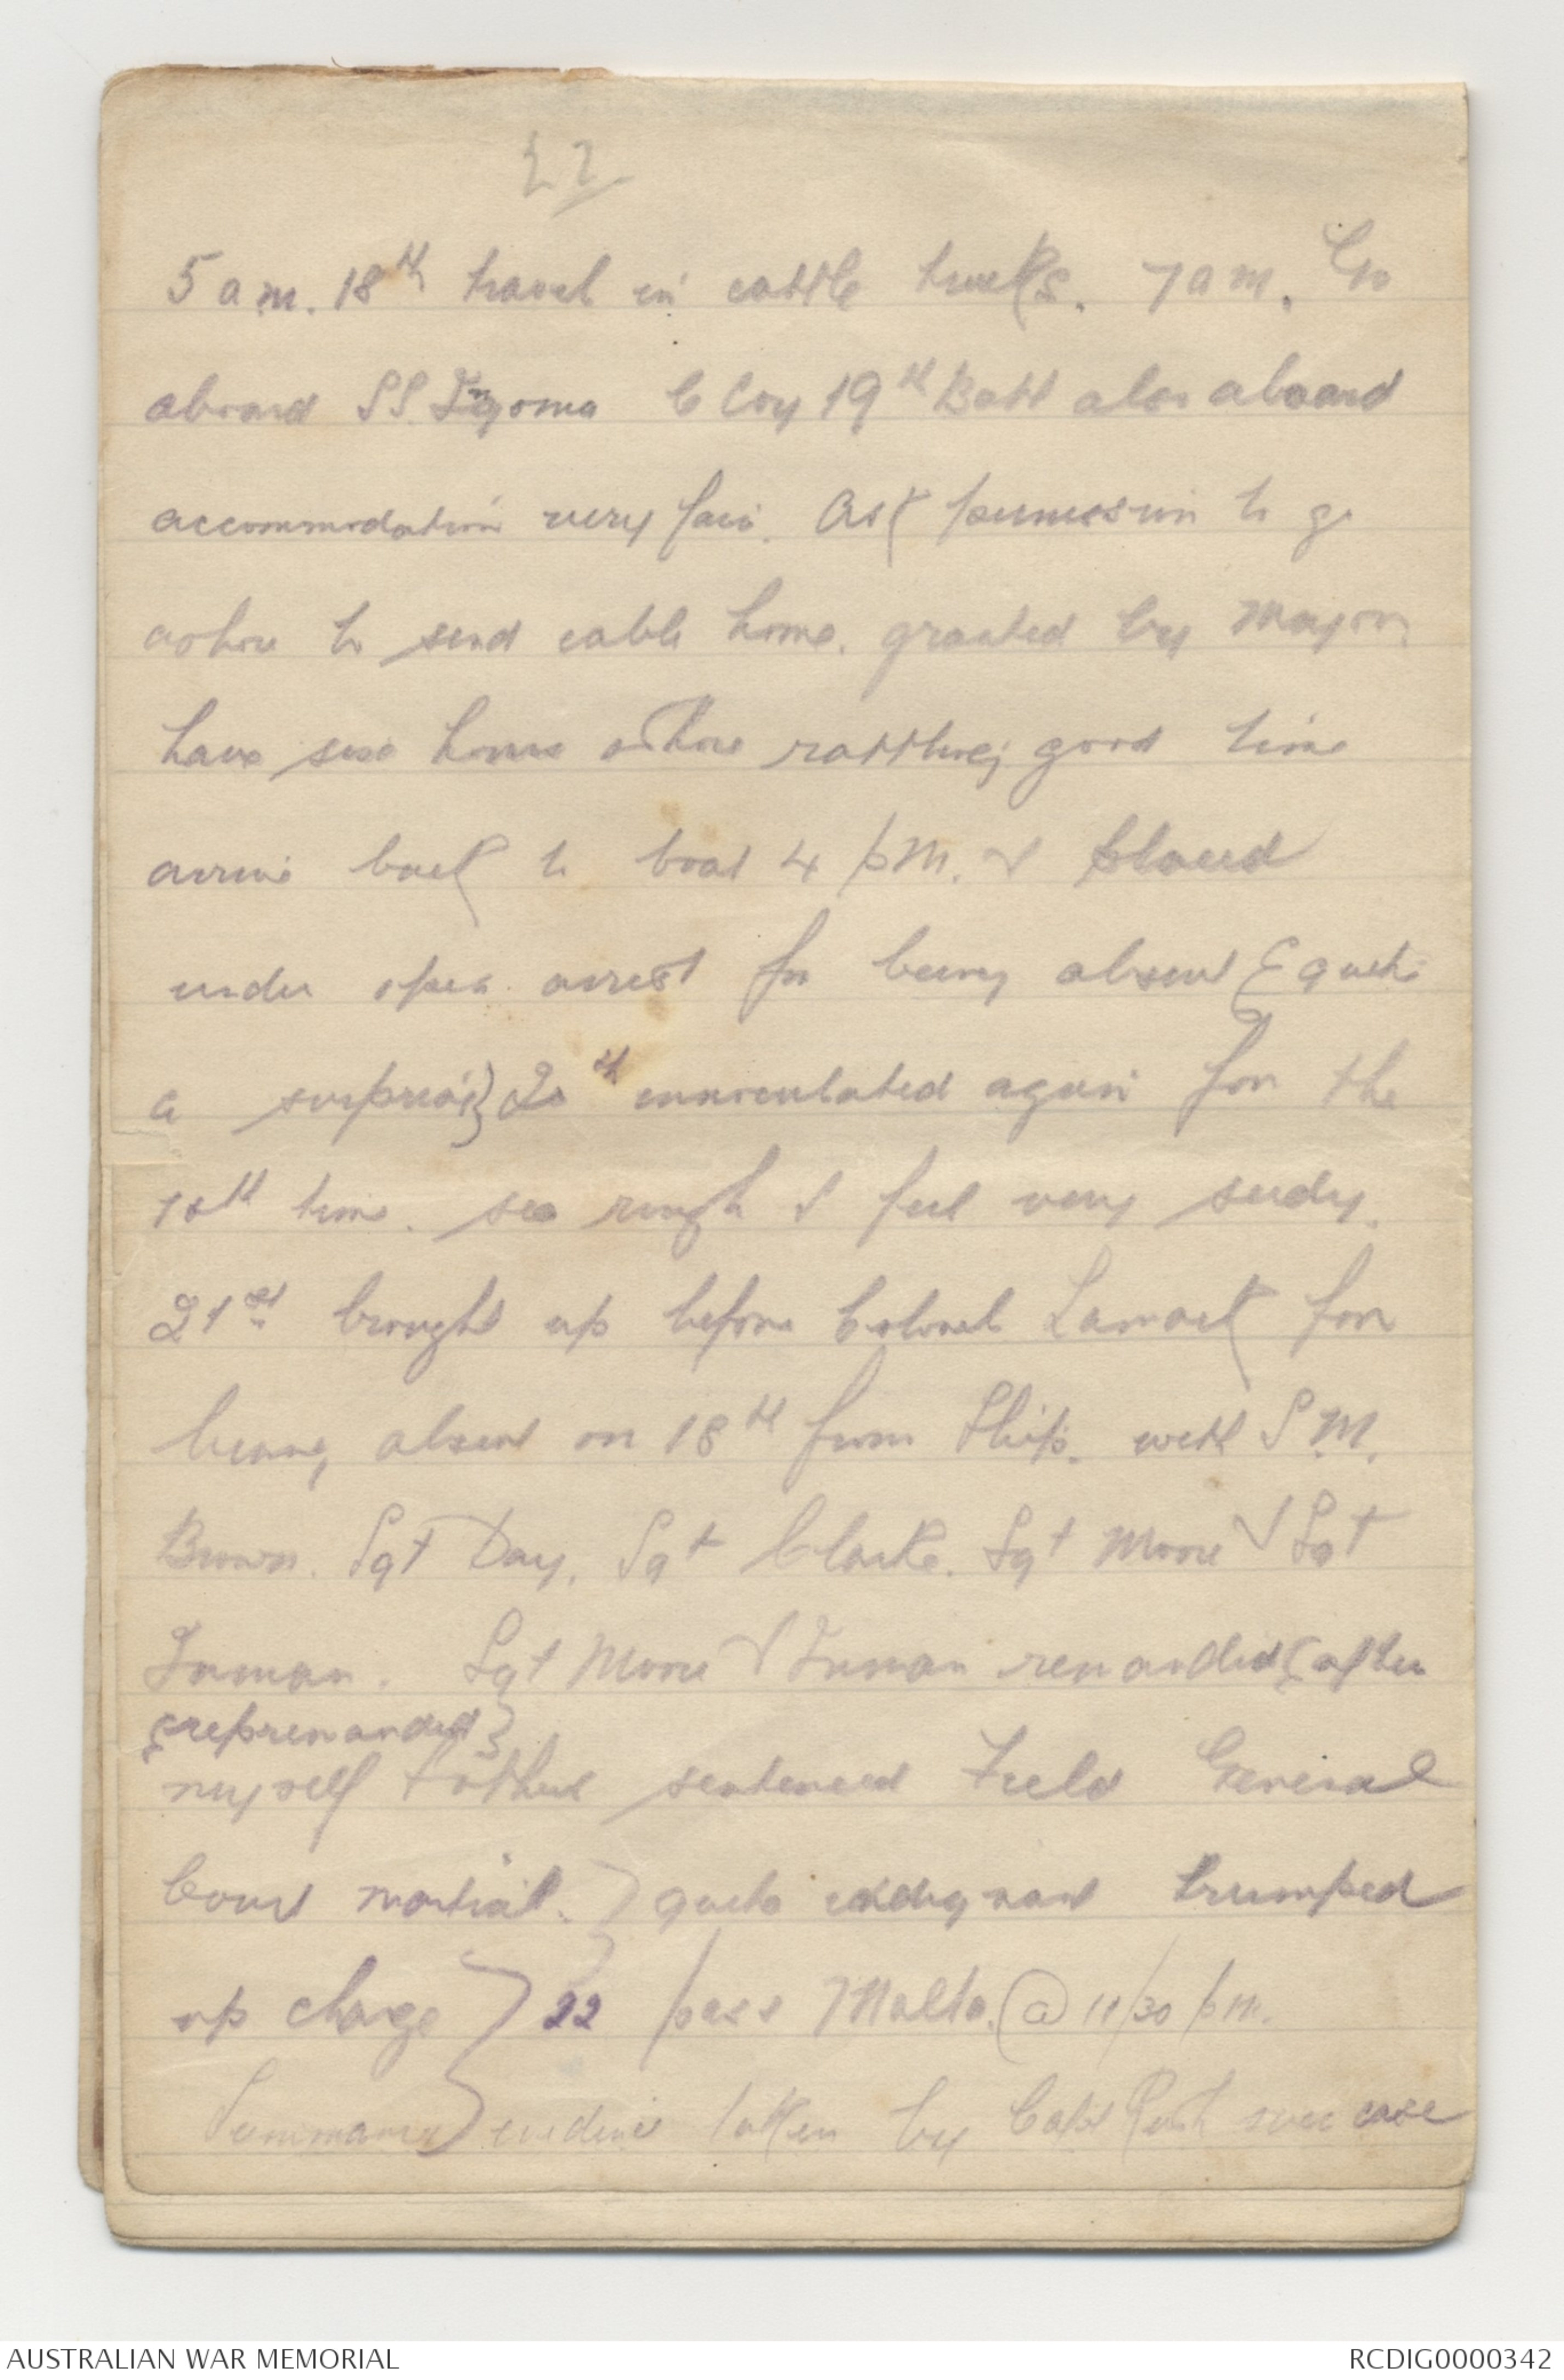 22
5 am. 18th travel in cattle trucks. 7 am. Go
aboard SS Ingoma C Coy 19th Batt also aboard
accommodation very fair. Ask permission to go
ashore to send cable home. granted by Major
have six hours ashore rattling good time
arrive back to boat 4 pm. & placed
under open arrest for being absent {quite
a surprise} 20th innoculated again for the
10th time. sea rough & feel very seedy.
21st brought up before Colonel Lamark for
being absent on 18th from Ship. with S.M.
Brown. Sgt Day. Sgt Clarke. Sgt Moore & Sgt
Inman. Sgt Moore & Inman remanded (after
{repremanded}
myself & others sentenced Field General
Court martial. } quite indignant trumped
up charge } 22 pass Malta. @ 11/30 pm.
Summary } evidence taken by Capt over case
AUSTRALIAN WAR MEMORIAL
RCDIG0000342